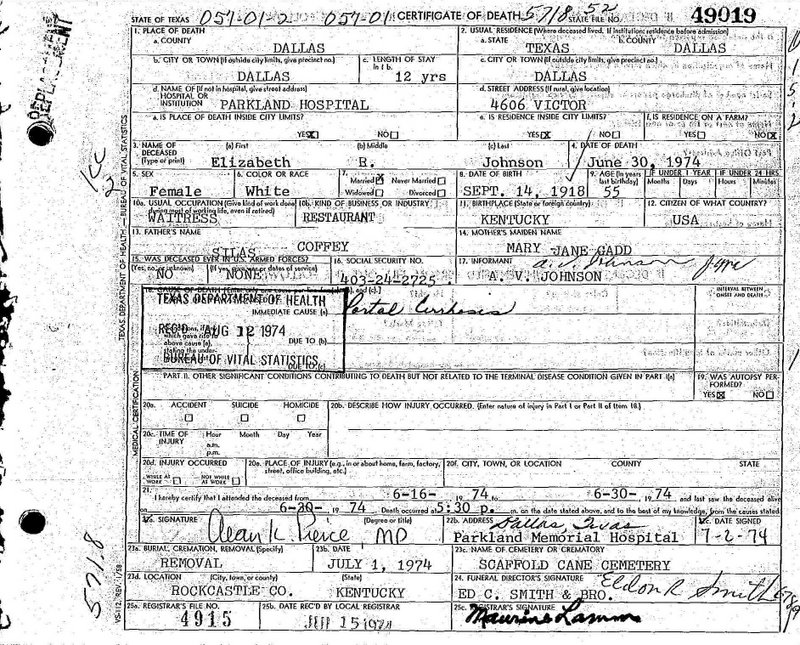 REPLACEMENT
STATE OF TEXAS 057-01-2 057-01 CERTIFICATE OF DEATH 5718 52 STATE FILE NO. 49019
1. PLACE OF DEATH
a. COUNTY
DALLAS
2. USUAL RESIDENCE (Where deceased lived. If institution: residence before admission)
a. STATE
TEXAS
b. COUNTY
DALLAS
b. CITY OR TOWN (If outside city limits, give precinct no.)
DALLAS
c. LENGTH OF STAY
in 1 b.
12 yrs
c. CITY OR TOWN (If outside city limits, give precinct no.)
DALLAS
d. NAME OF (If not in hospital, give street address)
HOSPITAL OR
INSTITUTION
PARKLAND HOSPITAL
d. STREET ADDRESS (If rural, give location)
4606 VICTOR
e. IS PLACE OF DEATH INSIDE CITY LIMITS?
YES X NO
e. IS RESIDENCE INSIDE CITY LIMITS?
YES X NO
f. IS RESIDENCE ON A FARM?
YES NO X
3. NAME OF
DECEASED
(Type or print)
(a) First
Elizabeth
(b) Middle
R.
(c) Last
Johnson
4. DATE OF DEATH
June 30, 1974
5. SEX
Female
6. COLOR OR RACE
White
7.
Married X Never Married
Widowed Divorced
8. DATE OF BIRTH
SEPT. 14, 1918
9. AGE (In years
last birthday)
55
IF UNDER 1 YEAR
Months Days
IF UNDER 24 HRS
Hours Minutes
10a. USUAL OCCUPATION (Give kind of work done
during most of working life, even if retired)
WAITRESS
10b. KIND OF BUSINESS OR INDUSTRY
RESTAURANT
11. BIRTHPLACE (State or foreign country)
KENTUCKY
12. CITIZEN OF WHAT COUNTRY?
USA
13. FATHER'S NAME
SILAS COFFEY
14. MOTHER'S MAIDEN NAME
MARY JANE GADD
15. WAS DECEASED EVER IN U.S. ARMED FORCES?
(Yes, no, or unknown) (If yes, give war or dates of service)
NO NONE
16. SOCIAL SECURITY NO.
403-24-2725
17. INFORMANT
A. V. JOHNSON
INTERVAL BETWEEN
ONSET AND DEATH
TEXAS DEPARTMENT OF HEALTH
IMMEDIATE CAUSE (a)
Portal Cirrhosis
REC'D AUG 12 1974
DUE TO (b)
BUREAU OF VITAL STATISTICS
DUE TO (c)
PART II. OTHER SIGNIFICANT CONDITIONS CONTRIBUTING TO DEATH BUT NOT RELATED TO THE TERMINAL DISEASE CONDITION GIVEN IN PART I(a)
19. WAS AUTOPSY PERFORMED?
YES X NO
20a. ACCIDENT SUICIDE HOMICIDE
20b. DESCRIBE HOW INJURY OCCURRED. (Enter nature of injury in Part I or Part II of item 18.)
20c. TIME OF
INJURY
Hour Month Day Year
a.m.
p.m.
20d. INJURY OCCURRED
WHILE AT
WORK
NOT WHILE
AT WORK
20e. PLACE OF INJURY (e.g., in or about home, farm, factory,
street, office building, etc.)
20f. CITY, TOWN, OR LOCATION COUNTY STATE
21.
I hereby certify that I attended the deceased from 6-16- 1974 to 6-30- 1974 and last saw the deceased alive
on 6-30 1974 Death occurred at 5:30 p. m. on the date stated above, and to the best of my knowledge, from the causes stated
22a. SIGNATURE (Degree or title)
Alan K. Pierce MD
22b. ADDRESS
Dallas, Texas
Parkland Memorial Hospital
22c. DATE SIGNED
7-2-74
23a. BURIAL, CREMATION, REMOVAL (Specify)
REMOVAL
23b. DATE
JULY 1, 1974
23c. NAME OF CEMETERY OR CREMATORY
SCAFFOLD CANE CEMETERY
23d. LOCATION (City, town, or county) (State)
ROCKCASTLE CO. KENTUCKY
24. FUNERAL DIRECTOR'S SIGNATURE
Eldon R Smith
ED C. SMITH & BRO.
25a. REGISTRAR'S FILE NO.
4915
25b. DATE REC'D BY LOCAL REGISTRAR
JUL 15 1974
25c. REGISTRAR'S SIGNATURE
Maurine Lamm
TEXAS DEPARTMENT OF HEALTH — BUREAU OF VITAL STATISTICS
MEDICAL CERTIFICATION
VS-112, REV. 1/58
5718